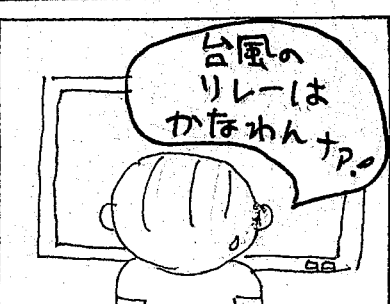 台風の
リレーは
かなわんナァ。